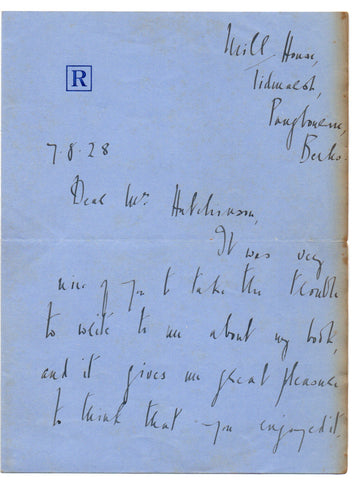 Mill House,
Tidmarsh,
Pangbourne,
R
Berks.
7.8.28
Dear Mr. Hutchinson,
It was very
nice of you to take the trouble
to write to me about my book,
and it gives me great pleasure
to think that you enjoyed it.